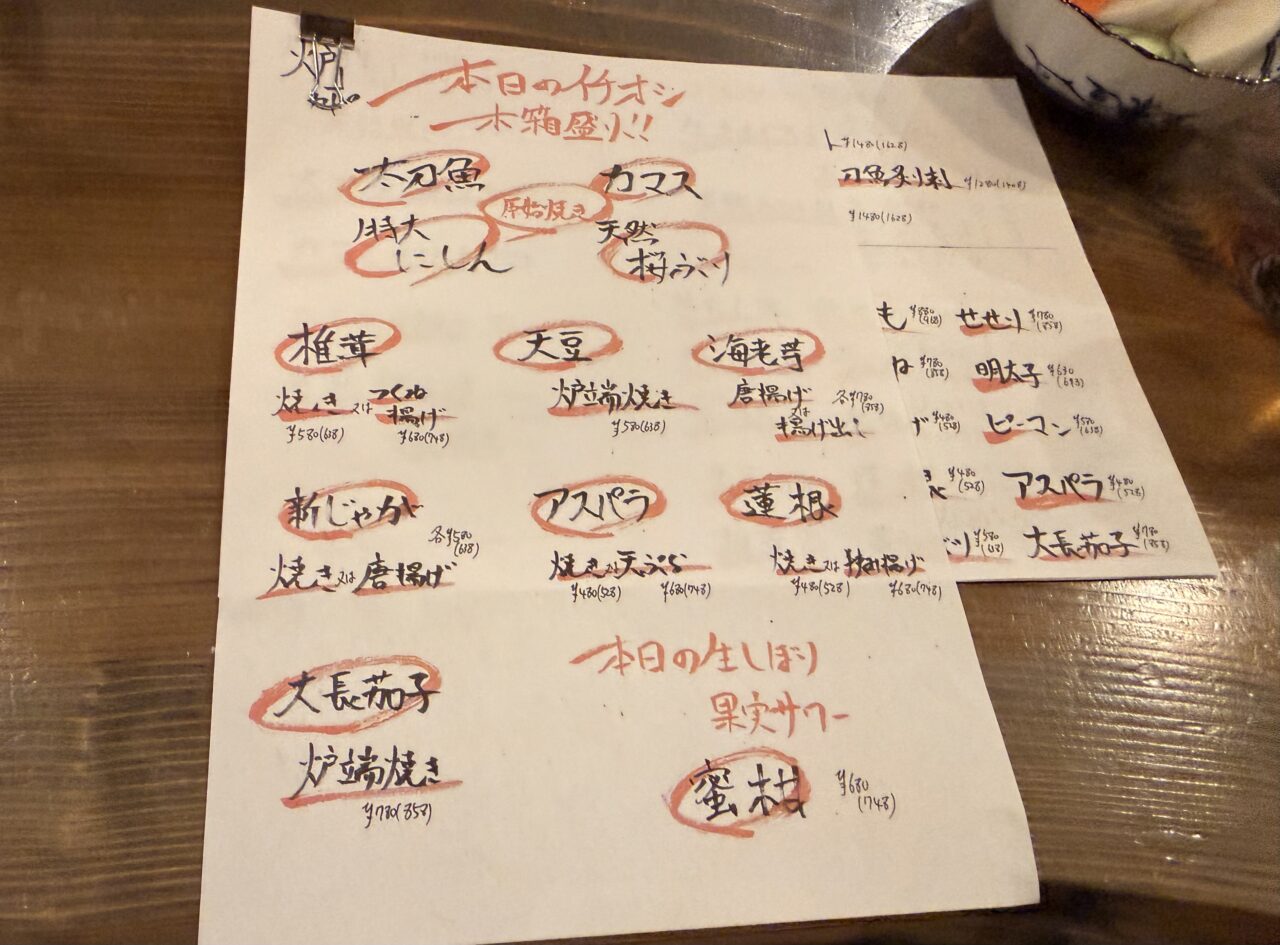 炉
本日のイチオシ
木箱盛り!!
太刀魚
カマス
原始焼き
特大
にしん
天然
桜ぶり
椎茸
焼き又はつくね
揚げ
¥580(638)
¥680(748)
天豆
炉端焼き
¥580(638)
海老芋
唐揚げ
又は
揚げ出し
各¥780
(858)
新じゃが
各¥580
(638)
焼き又は唐揚げ
アスパラ
焼き又は天ぷら
¥480(528) ¥680(748)
蓮根
焼き又は挟み揚げ
¥480(528) ¥680(748)
大長茄子
炉端焼き
¥780(858)
本日の生しぼり
果実サワー
蜜柑
¥680
(748)
¥1480(1628)
刀魚炙り刺 ¥1280(1408)
¥1480(1628)
も ¥880
(968)
せせり ¥780
(858)
ね ¥780
(858)
明太子 ¥630
(693)
げ ¥480
(528)
ピーマン ¥580
(638)
¥480
(528)
アスパラ ¥480
(528)
り ¥580
(638)
大長茄子 ¥780
(858)